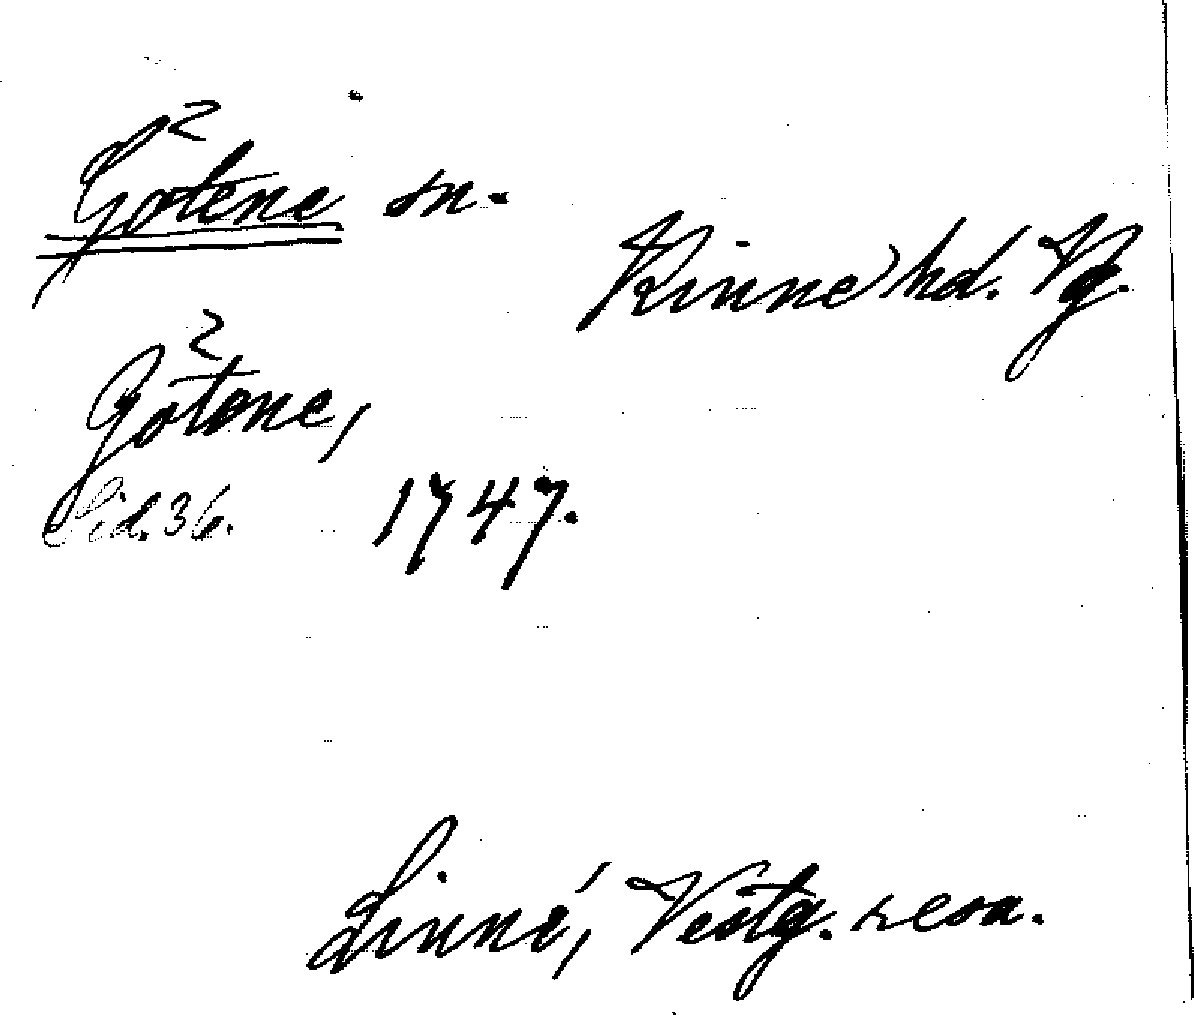 Götene sn.
Kinne hd. Vg.
Götene,
Sid. 36. 1747.
Linné, Vestg. resa.